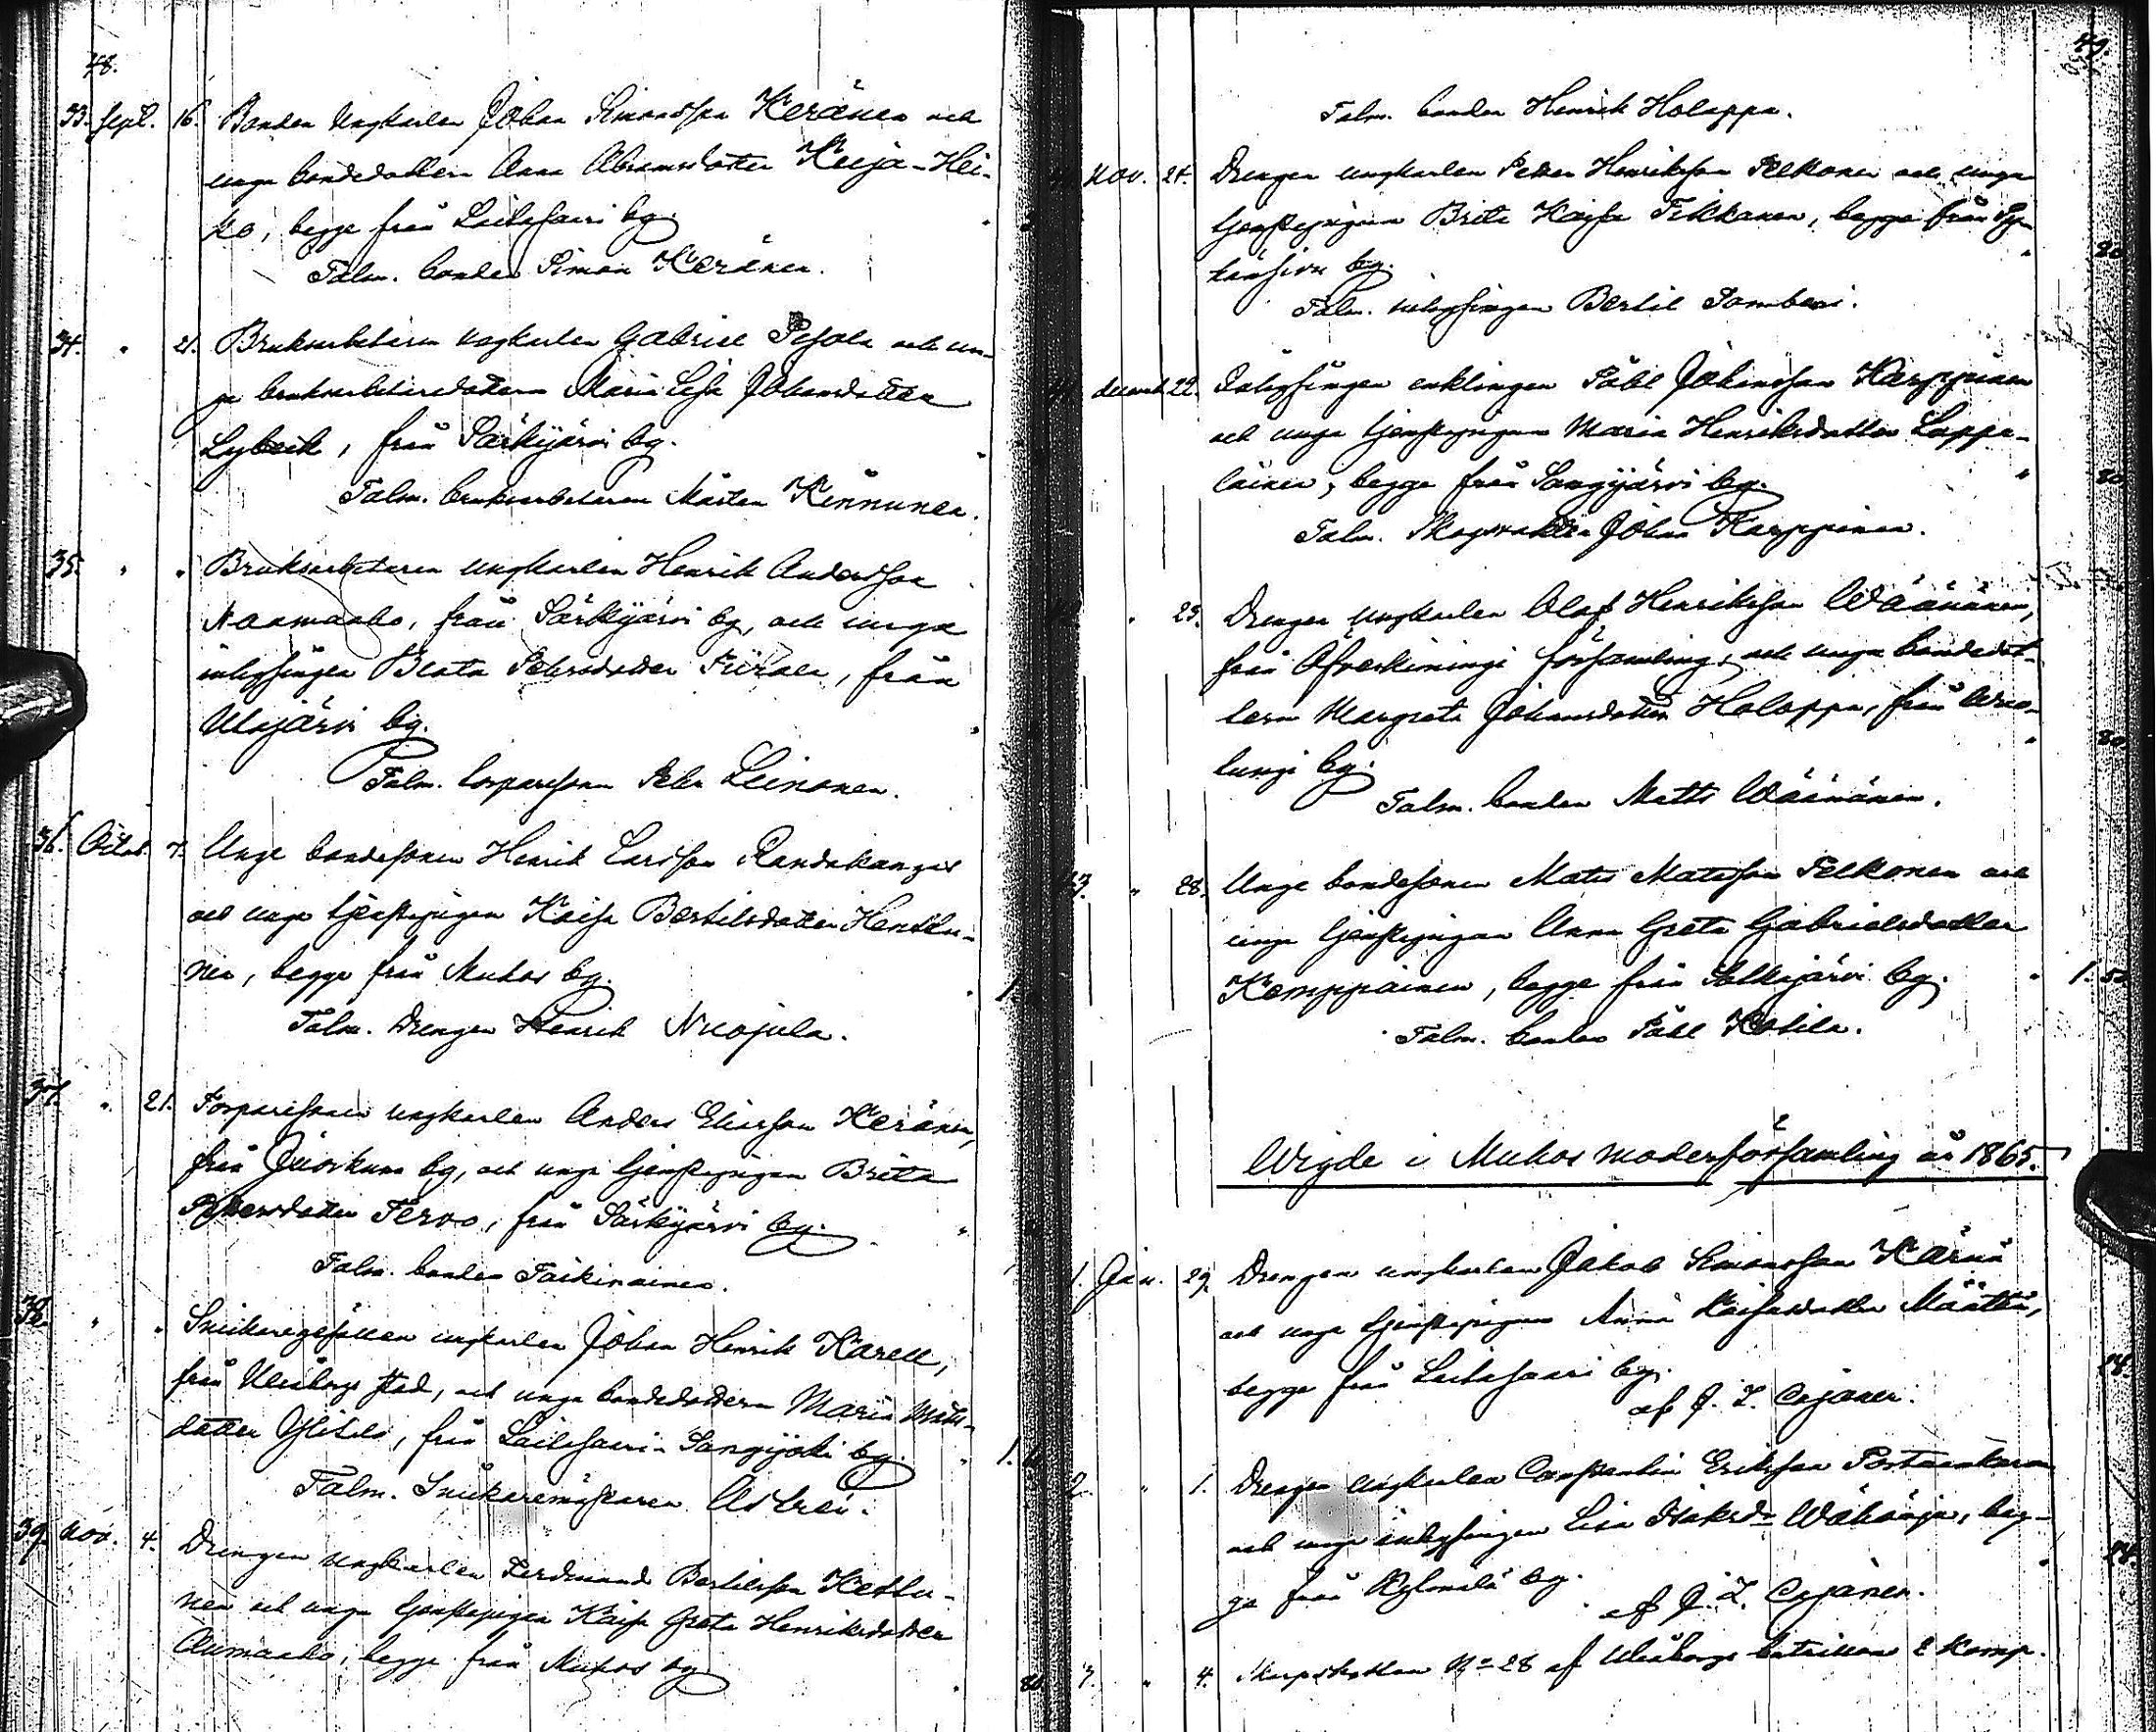 48.
33. Sept. 16. Bonden Ungkarlen Johan Simonsson Keränen och
unga bondedottern Anna Abramsdotter Keija-Hei-
ko, begge från Laitasaari by.
Talm. bonden Simon Keränen.
34. " 21. Bruksarbetaren ungkarlen Gabriel Pesola och un-
ga bruksarbetaredottern Maria Lisa Johansdotter
Lybeck, från Särkijärvi by.
Talm. bruksarbetaren Mårten Kinnunen.
35. " " Bruksarbetaren ungkarlen Henrik Andersson
Naamanko, från Särkijärvi by, och unga
inhysingen Beata Petersdotter, från
Ulajärvi by.
Talm. torparesonen Petter Leinonen.
36. Octob. 7. Unge bondesonen Henrik Larsson Randakangas
och unga tjenstepigan Kaisa Bertilsdotter Henttu-
nen, begge från Muhos by.
Talm. Drengen Henrik Nuojula.
37. " 21. Torparesonen ungkarlen Anders Eliasson Keränen,
från by, och unga tjenstepigan Brita
Pettersdotter Tervo, från Särkijärvi by.
Talm. bonden Taikinainen.
38. " " Snickaregesällen ungkarlen Johan Henrik Karell,
från Uleåborgs stad, och unga bondedottern Maria Mats-
dotter Ylitalo, från Laitasaari-Sangijoki by. 1.
Talm. Snickaremästaren
39. Nov. 4. Drengen ungkarlen Ferdinand Bertilsson Kettu-
nen och unga tjenstepigan Kaisa Greta Henriksdotter
Aumanko, begge från Muhos by. 80
49.
Talm. bonden Henrik Holappa.
Nov. 24. Drengen ungkarlen Petter Henriksson Pelkonen och unga
tjenstepigan Brita Kajsa Tikkanen, begge från
by. 80
Talm. inhysingen Bertil
Decemb. 22. Inhysingen enklingen Påhl Johansson Karppinen
och unga tjenstepigan Maria Henriksdotter Lappa-
lainen, begge från Sangijärvi by. 80
Talm. Skogvaktaren Johan Karppinen.
" 23. Drengen ungkarlen Olof Henriksson Wäänänen,
från Öfverkiminge församling, och unga bondedot-
tern Margreta Johansdotter Holappa, från
by. 80
Talm. bonden Matts Wäänänen.
43. " 28. Unge bondesonen Mats Matsson Pelkonen och
unga tjenstepigan Anna Greta Gabrielsdotter
Kemppainen, begge från by. 1. 50
Talm. bonden Påhl Kotila.
Wigde i Muhos moderförsamling år 1865.
1. Jan. 29. Drengen ungkarlen Jakob Simonsson Kärnä
och unga tjenstepigan Anna Määttä,
begge från Laitasaari by. 14.
af J. L. Cajaner.
2. " 1. Drengen ungkarlen Constantin Eriksson
och unga inhysingen Lisa Isaksdr Wähäoja, beg-
ge från Kylmälä by. 14.
af J. L. Cajaner.
3. " 4. Skarpskytten No 28 af Uleåborgs bataillon 2 komp.